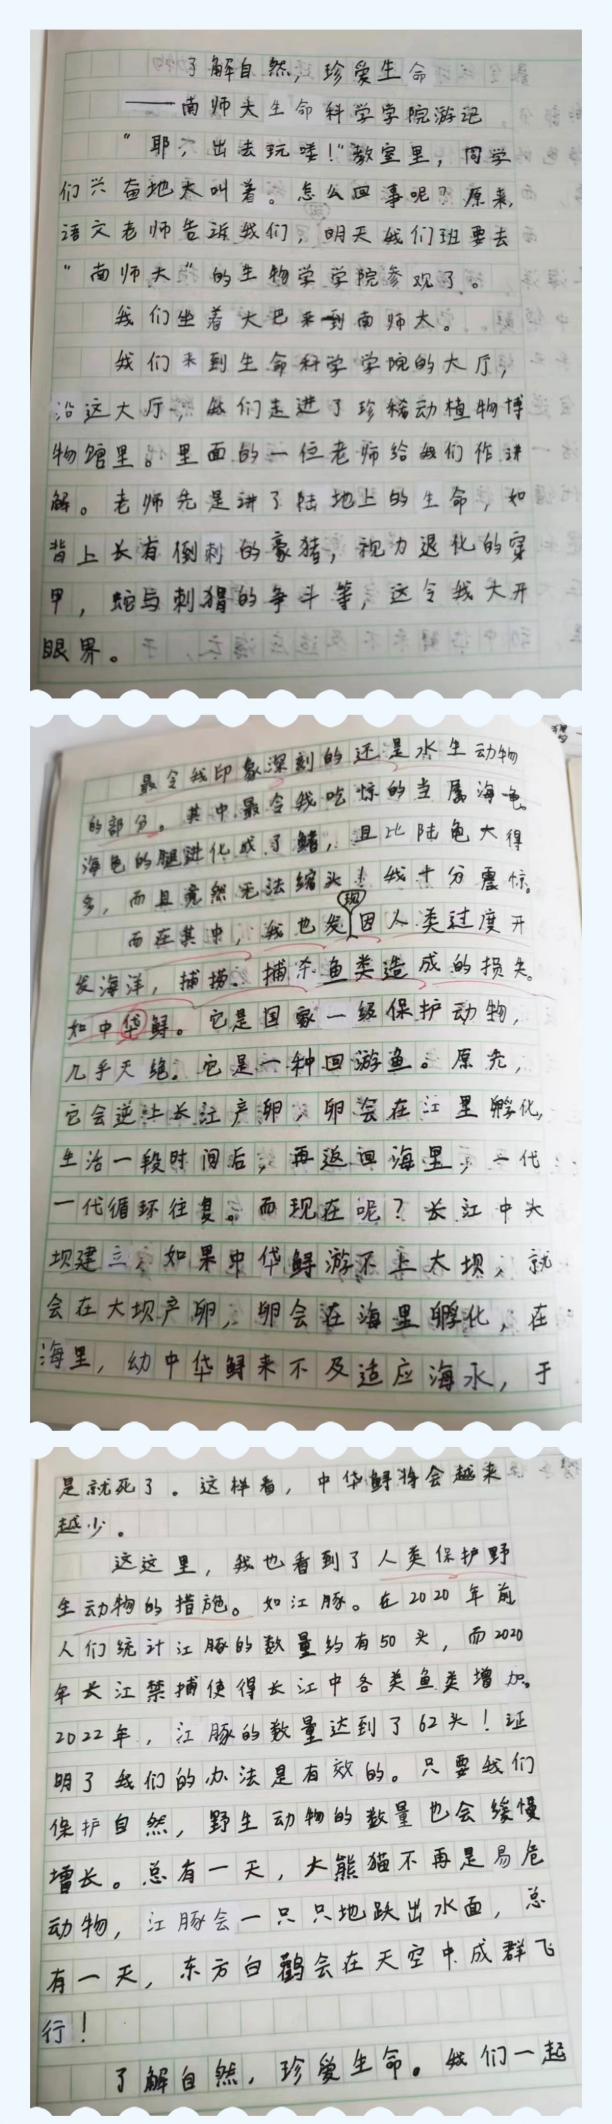 了解自然，珍爱生命
——南师大生命科学学院游记
“耶，出去玩喽！”教室里，同学
们兴奋地大叫着。怎么回事呢？原来，
语文老师告诉我们，明天我们班要去
“南师大”的生物学学院参观了。
我们坐着大巴来到南师大。
我们来到生命科学学院的大厅，
沿这大厅，我们走进了珍稀动植物博
物馆里。里面的一位老师给我们作讲
解。老师先是讲了陆地上的生命，如
背上长有倒刺的豪猪，视力退化的穿
甲，蛇与刺猬的争斗等，这令我大开
眼界。
最令我印象深刻的还是水生动物
的部分。其中最令我吃惊的当属海龟。
海龟的腿进化成了鳍，且比陆龟大得
多，而且竟然无法缩头！我十分震惊。
而在其中，我也发现因人类过度开
发海洋，捕捞、捕杀鱼类造成的损失。
如中华鲟。它是国家一级保护动物，
几乎灭绝。它是一种回游鱼。原先，
它会逆上长江产卵，卵会在江里孵化，
生活一段时间后，再返回海里，一代
一代循环往复。而现在呢？长江中大
坝建立，如果中华鲟游不上大坝，就
会在大坝产卵，卵会在海里孵化，在
海里，幼中华鲟来不及适应海水，于
是就死了。这样看，中华鲟将会越来
越少。
这这里，我也看到了人类保护野
生动物的措施。如江豚。在2020年前
人们统计江豚的数量约有50头，而2020
年长江禁捕使得长江中各类鱼类增加。
2022年，江豚的数量达到了62头！证
明了我们的办法是有效的。只要我们
保护自然，野生动物的数量也会缓慢
增长。总有一天，大熊猫不再是易危
动物，江豚会一只只地跃出水面，总
有一天，东方白鹳会在天空中成群飞
行！
了解自然，珍爱生命。我们一起